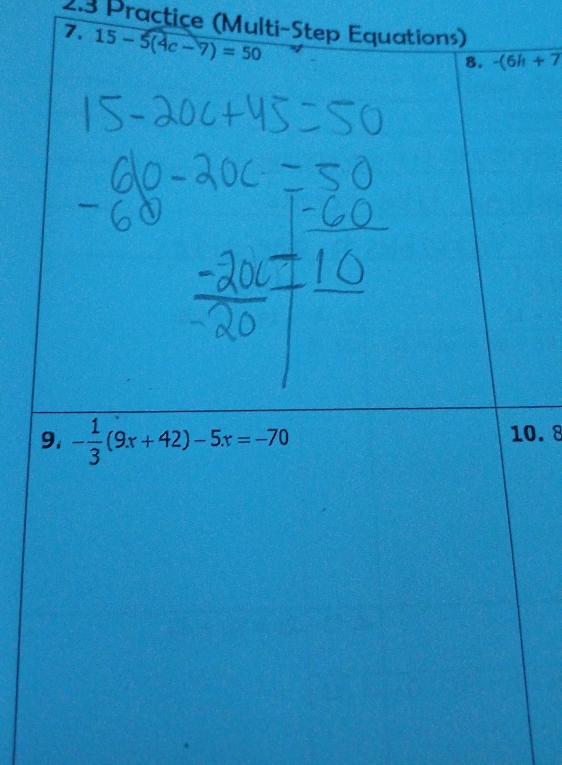 2.3 Practice (Multi-Step Equations)
7. 15 - 5(4c - 7) = 50
15-20c+45=50
60-20c = 50
-60 -60
-20c = 10
-20
8. -(6h + 7
9. -1/3(9x + 42) - 5x = -70
10. 8